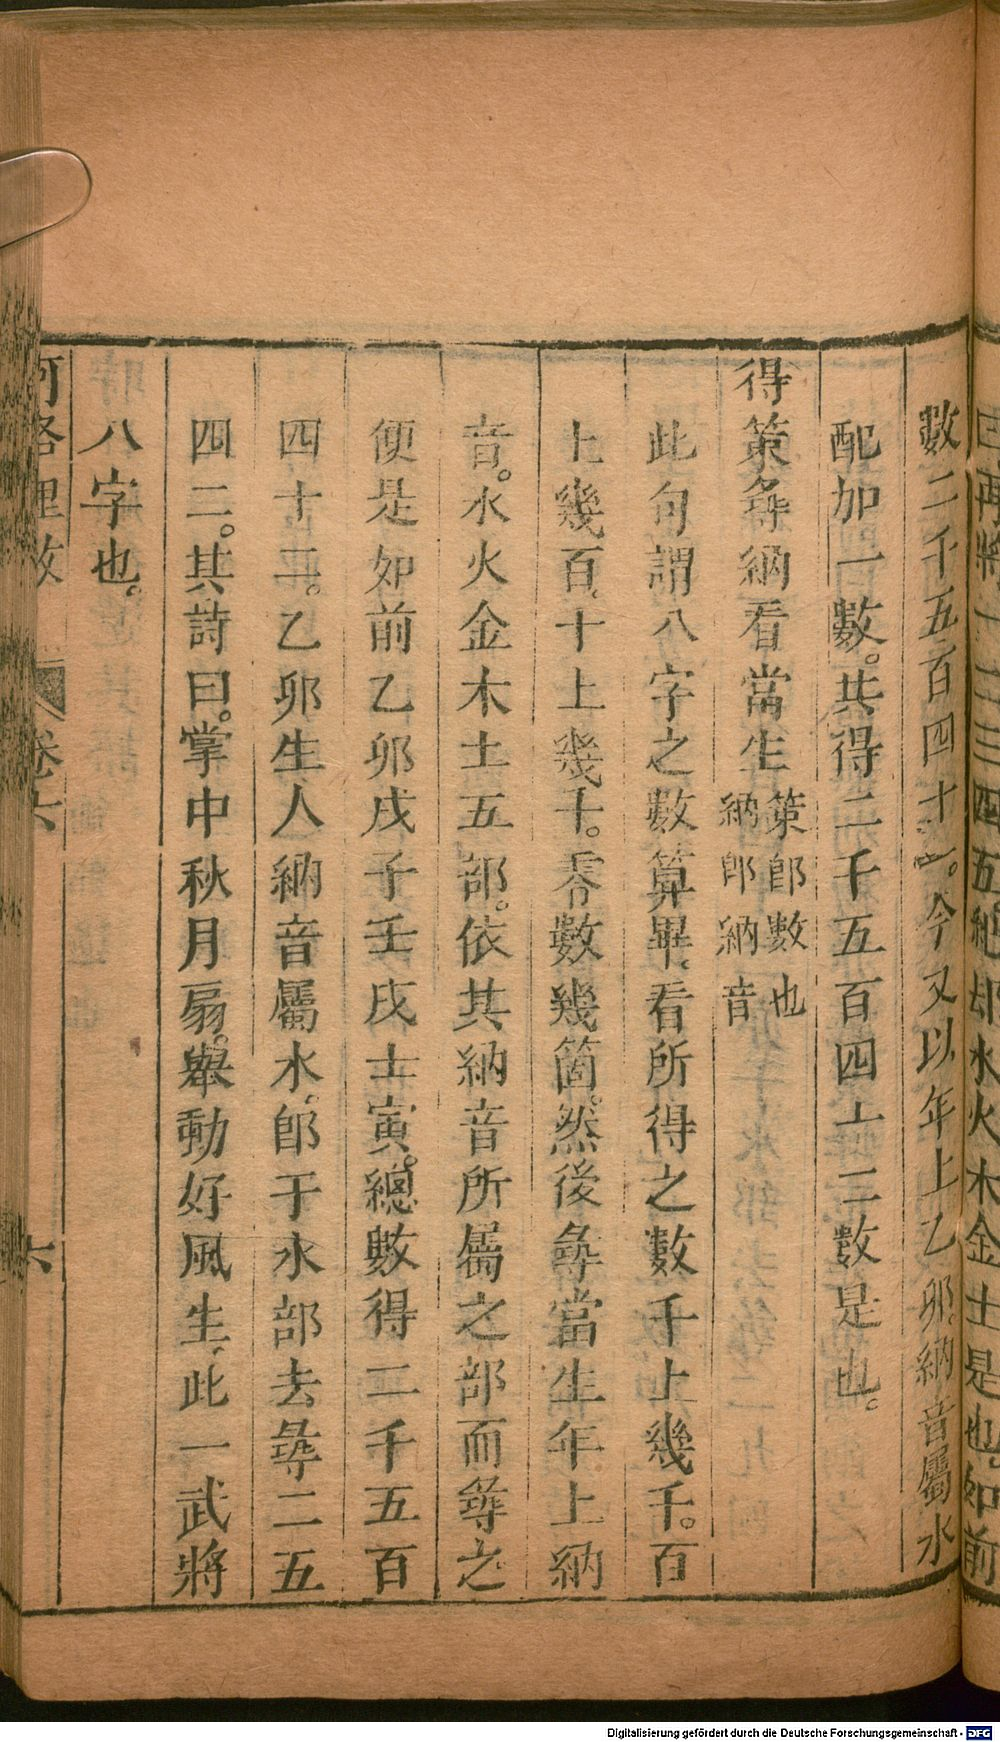 四五
水火木金土是也。如前
數二千五百四十一。今又以年上乙卯。納音屬水
配加一數。共得二千五百四十二數是也。
得策尋納看當生
策卽數也
納卽納音
此句謂八字之數算畢。看所得之數千上幾千。百
上幾百。十上幾十。零數幾箇。然後尋當生年上納
音。水火金木土五部。依其納音所屬之部而尋之
便是如前乙卯戊子壬戌壬寅。總數得二千五百
四十二。乙卯生人納音屬水。卽于水部去尋二五
四二。其詩曰。掌中秋月扇。舉動好風生。此一武將
八字也。
河洛理數
卷六
六
Digitalisierung gefördert durch die Deutsche Forschungsgemeinschaft - DFG